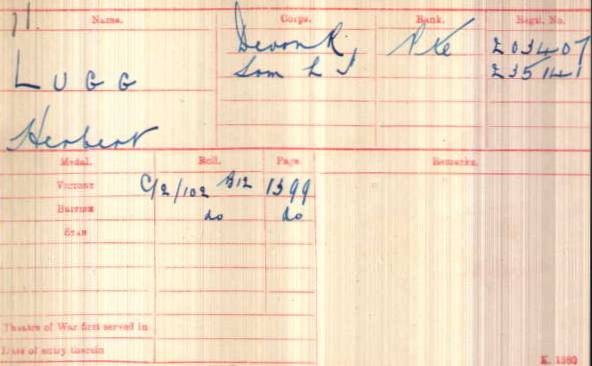 Name. Corps. Rank. Regtl. No.
Devon R, Pte 203407
LUGG Som L I 235141
Herbert
Medal. Roll. Page. Remarks.
VICTORY C/2/102 B12 1399
BRITISH do do
STAR
Theatre of War first served in
Date of entry therein
K. 1380